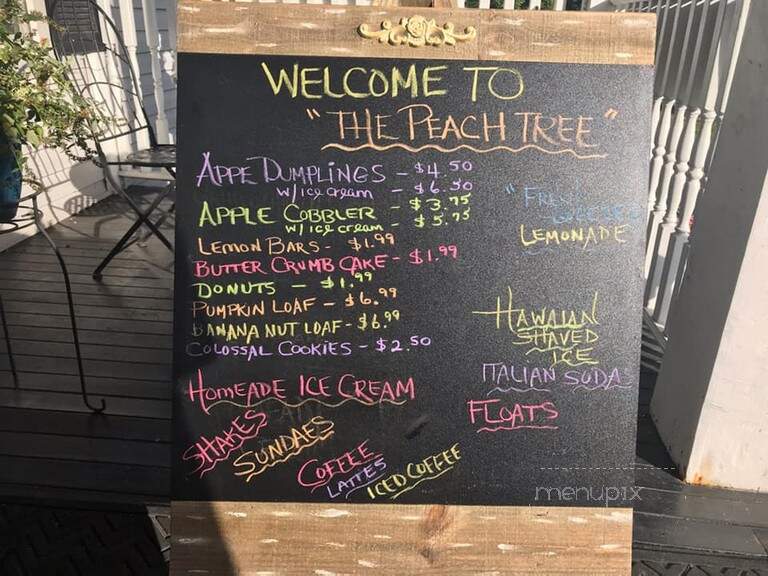 WELCOME TO
"THE PEACH TREE"
APPE DUMPLINGS - $4.50
w/ice cream - $6.50
APPLE COBBLER - $3.75
w/ice cream - $5.75
LEMON BARS - $1.99
BUTTER CRUMB CAKE - $1.99
DONUTS - $1.99
PUMPKIN LOAF - $6.99
BANANA NUT LOAF - $6.99
COLOSSAL COOKIES - $2.50
HOMEADE ICE CREAM
SHAKES
SUNDAES
COFFEE
LATTES
ICED COFFEE
LEMONADE
HAWAIAN
SHAVED
ICE
ITALIAN SODA
FLOATS
menupix